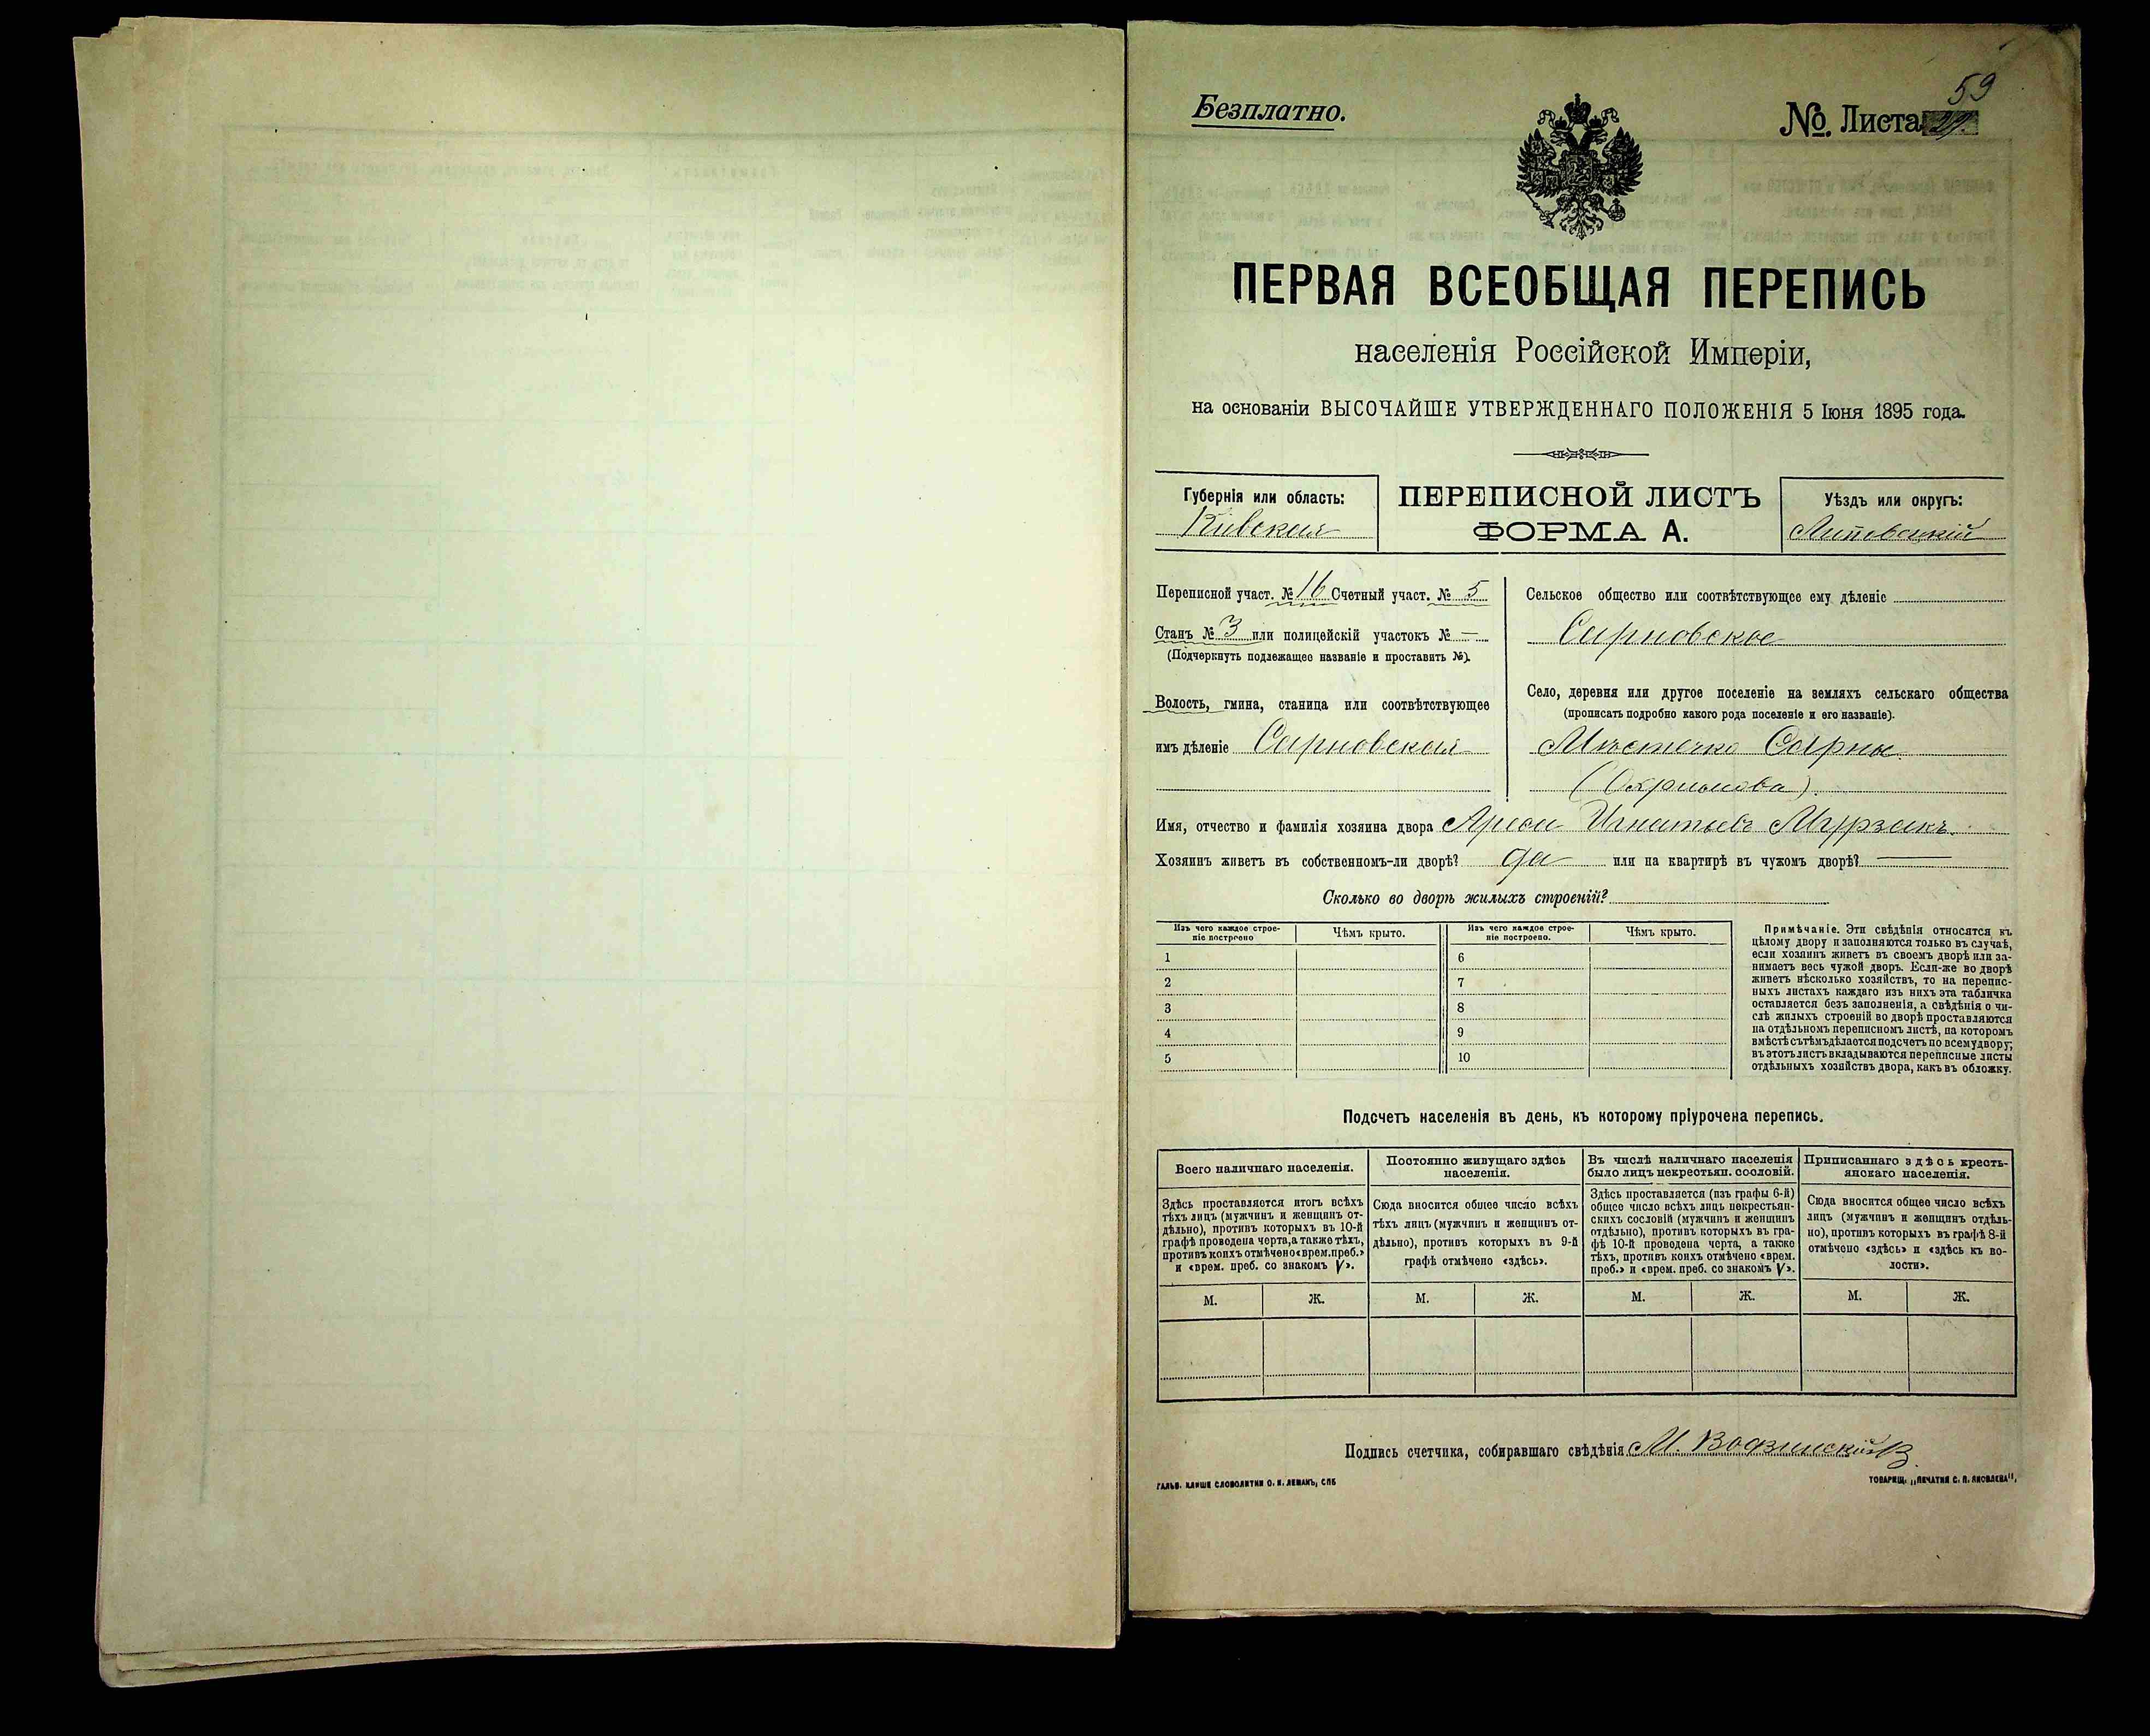 Безплатно.
59
№. Листа
ПЕРВАЯ ВСЕОБЩАЯ ПЕРЕПИСЬ
населенія Россійской Имперіи,
на основаніи ВЫСОЧАЙШЕ УТВЕРЖДЕННАГО ПОЛОЖЕНІЯ 5 Іюня 1895 года.
Губернія или область:
Кіевская
ПЕРЕПИСНОЙ ЛИСТЪ
ФОРМА А.
Уѣздъ или округъ:
Липовецкій
Переписной участ. № 16 Счетный участ. № 5
Станъ № 3 или полицейскій участокъ № —
(Подчеркнуть подлежащее названіе и проставить №).
Волость, гмина, станица или соотвѣтствующее
имъ дѣленіе Сарновская
Сельское общество или соотвѣтствующее ему дѣленіе
Сарновское
Село, деревня или другое поселеніе на земляхъ сельскаго общества
(прописать подробно какого рода поселеніе и его названіе).
Мѣстечко Сарны.
Имя, отчество и фамилія хозяина двора Игнатьевъ Мурзакъ.
Хозяинъ живетъ въ собственномъ-ли дворѣ? да или на квартирѣ въ чужомъ дворѣ? —
Сколько во дворѣ жилыхъ строеній?
Изъ чего каждое строе-
ніе построено
Чѣмъ крыто.
1
2
3
4
5
Изъ чего каждое строе-
ніе построено.
Чѣмъ крыто.
6
7
8
9
10
Примѣчаніе. Эти свѣдѣнія относятся къ
цѣлому двору и заполняются только въ случаѣ,
если хозяинъ живетъ въ своемъ дворѣ или за-
нимаетъ весь чужой дворъ. Если-же во дворѣ
живетъ нѣсколько хозяйствъ, то на перепис-
ныхъ листахъ каждаго изъ нихъ эта табличка
оставляется безъ заполненія, а свѣдѣнія о чи-
слѣ жилыхъ строеній во дворѣ проставляются
на отдѣльномъ переписномъ листѣ, на которомъ
вмѣстѣ съ тѣмъ дѣлается подсчетъ по всему двору;
въ этотъ листъ вкладываются переписные листы
отдѣльныхъ хозяйствъ двора, какъ въ обложку.
Подсчетъ населенія въ день, къ которому пріурочена перепись.
Всего наличнаго населенія.
Здѣсь проставляется итогъ всѣхъ
тѣхъ лицъ (мужчинъ и женщинъ от-
дѣльно), противъ которыхъ въ 10-й
графѣ проведена черта, а также тѣхъ,
противъ коихъ отмѣчено «врем. преб.»
и «врем. преб. со знакомъ V».
М.
Ж.
Постоянно живущаго здѣсь
населенія.
Сюда вносится общее число всѣхъ
тѣхъ лицъ (мужчинъ и женщинъ от-
дѣльно), противъ которыхъ въ 9-й
графѣ отмѣчено «здѣсь».
М.
Ж.
Въ числѣ наличнаго населенія
было лицъ некрестьян. сословій.
Здѣсь проставляется (изъ графы 6-й)
общее число всѣхъ лицъ некрестьян-
скихъ сословій (мужчинъ и женщинъ
отдѣльно), противъ которыхъ въ гра-
фѣ 10-й проведена черта, а также
тѣхъ, противъ коихъ отмѣчено «врем.
преб.» и «врем. преб. со знакомъ V».
М.
Ж.
Приписаннаго здѣсь кресть-
янскаго населенія.
Сюда вносится общее число всѣхъ
лицъ (мужчинъ и женщинъ отдѣль-
но), противъ которыхъ въ графѣ 8-й
отмѣчено «здѣсь» и «здѣсь къ во-
лости».
М.
Ж.
Подпись счетчика, собиравшаго свѣдѣнія М.
ГАЛЬВ. КЛИШЕ СЛОВОЛИТНИ О. И. ЛЕМАНЪ, СПБ
ТОВАРИЩ. „ПЕЧАТНЯ С. П. ЯКОВЛЕВА",